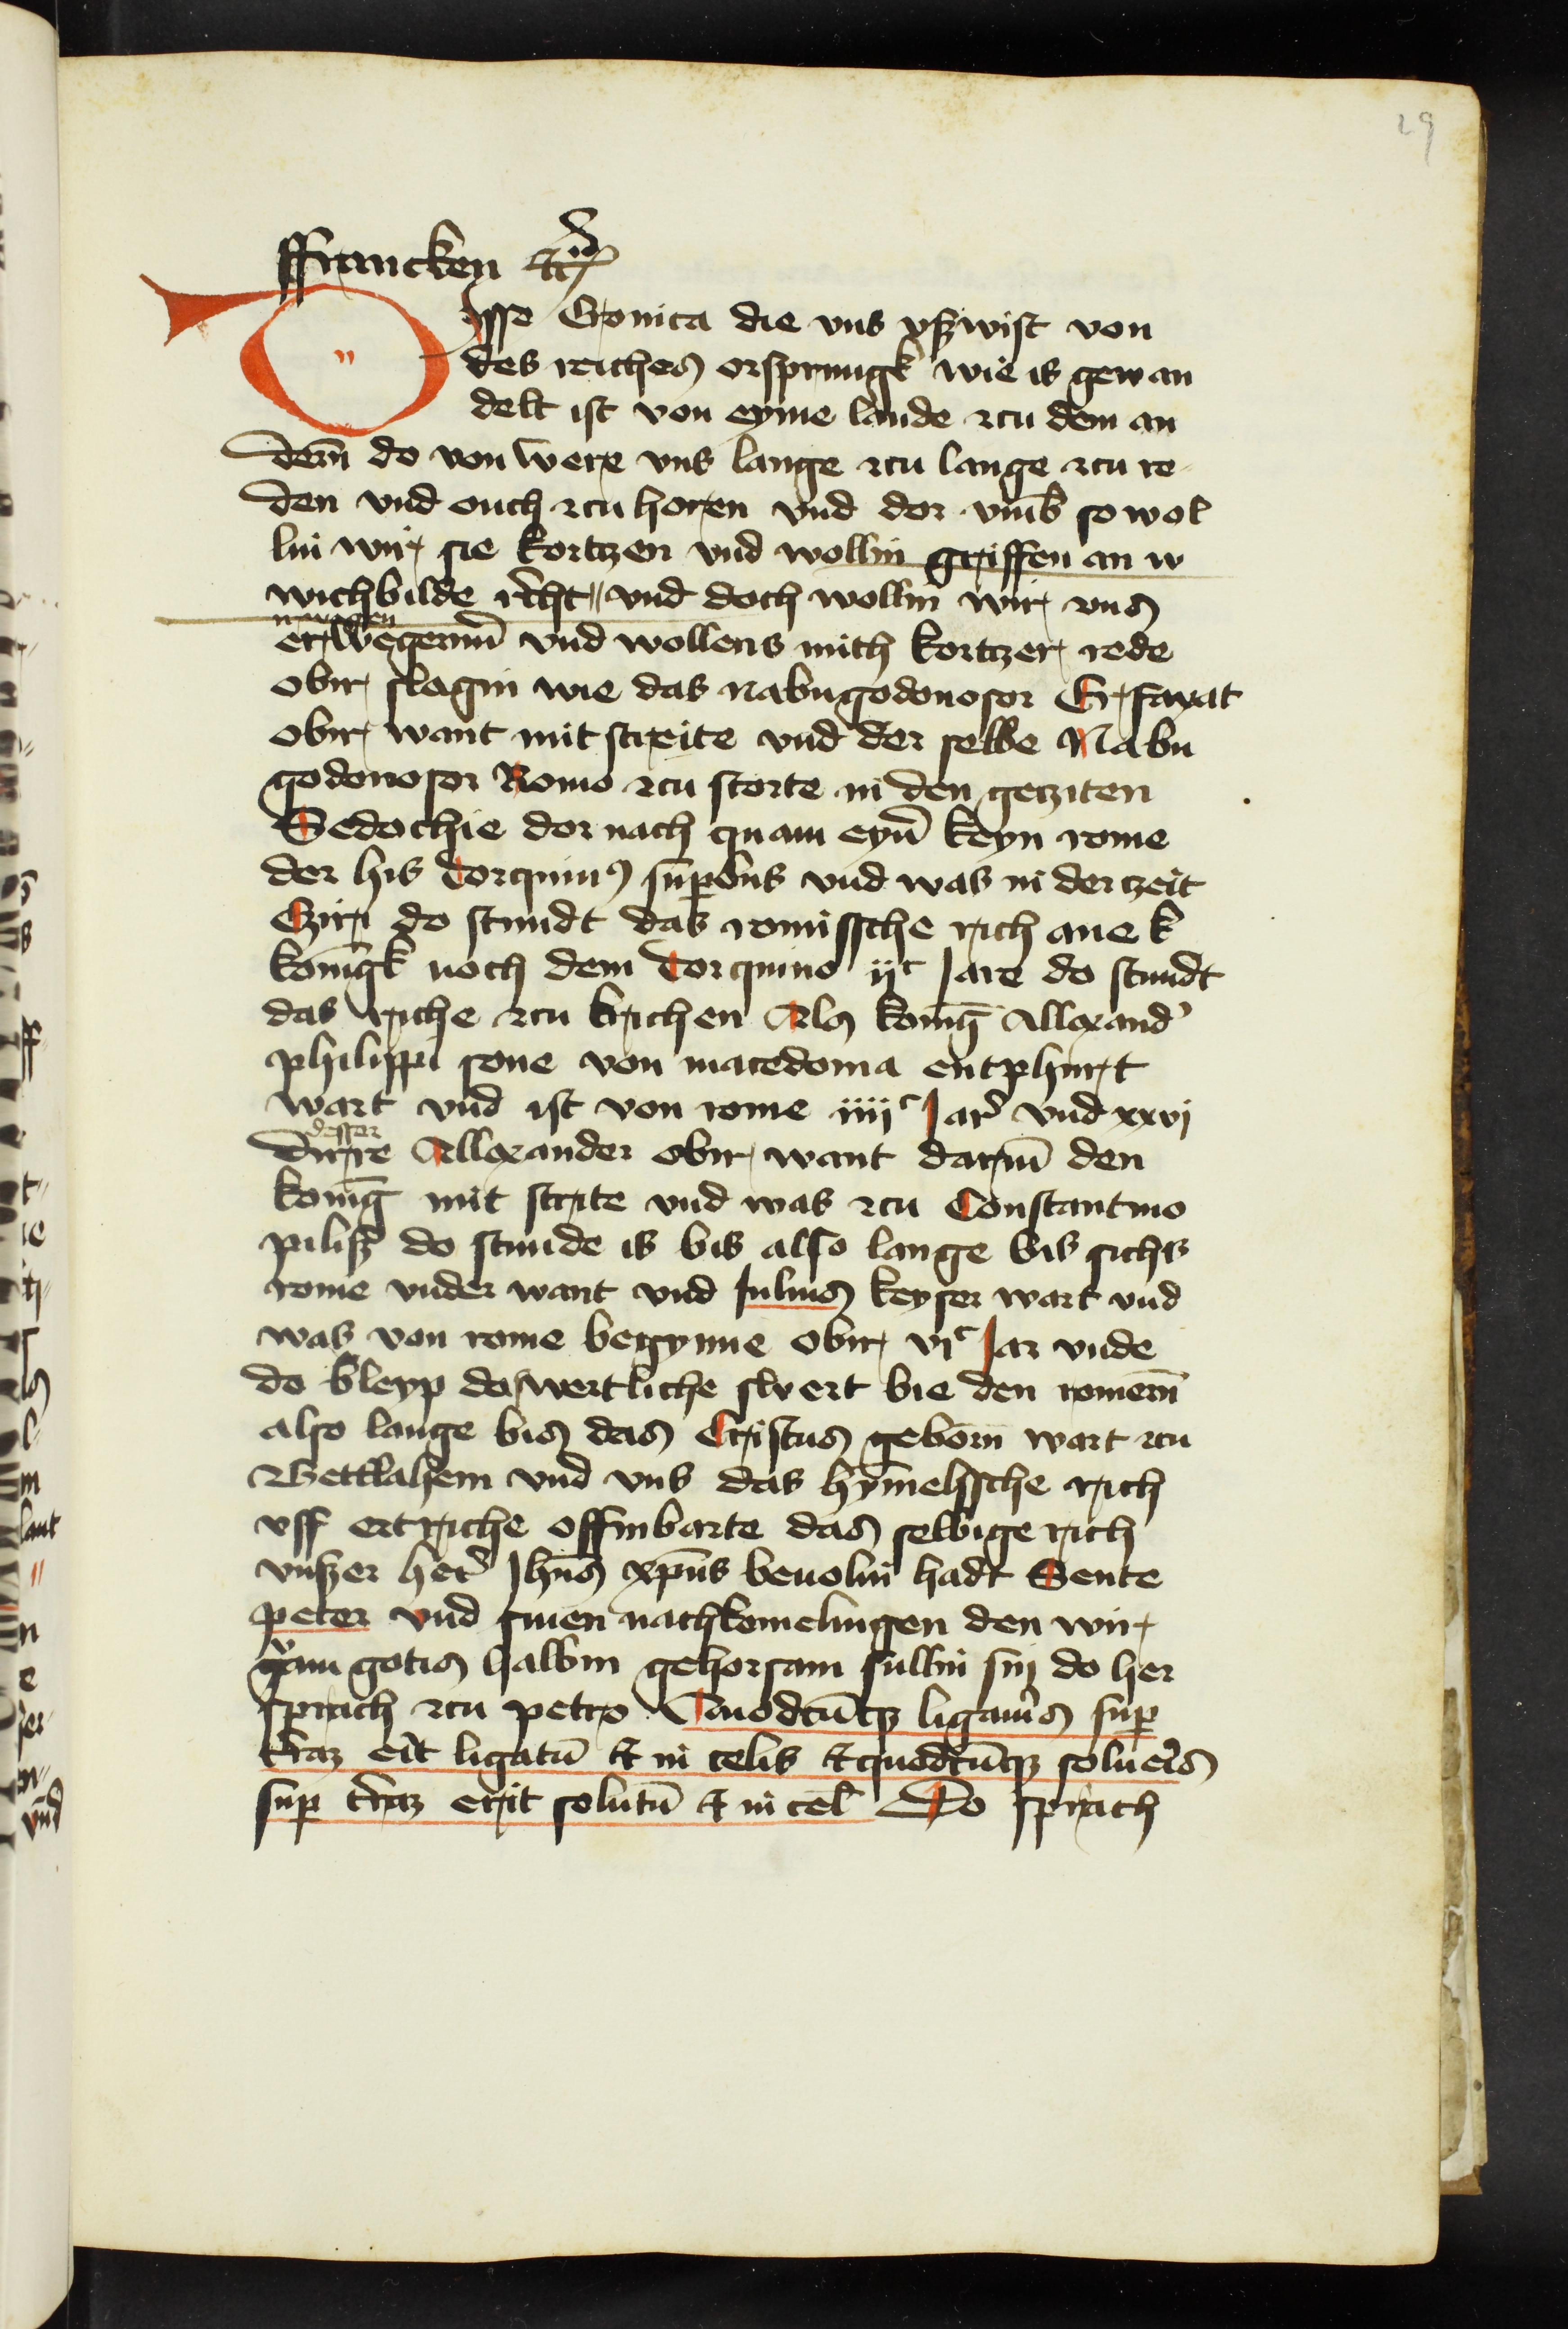 29
ffrancken etc
Disse Cronica die vns vßwist von
des riches orsprungk wie is gewan
delt ist von eyme lande zcu dem an
dern̄ do von were vns lange zcu lange zcu re-
den vnd ouch zcu horen vnd dor vm̄b so wol
lin wir sie kortzen vnd wollin griffen an w
wichbilde recht vnd doch wollin wir vns
vnd wollens mith kortzer rede
obir slagin wie das nabugodonosor
obir want mit streite vnd der selbe Nabu
godonosor Romo zcu storte in den getziten
Sedochie dor nach quam eyn̄ keyn rome
der his Torquinus sup̲bus vnd was in der tzeit
do stundt das romissche rich ane k
konīgk noch dem Torquino ijᶜ Jare do stundt
das riche zcu krichen Als konīg Allexand'
philippi sone von macedonia entphurt
wart vnd ist von rome iiijᶜ Jar' vnd xxvj
desser
Allexander obir want darium den
konīg mit strite vnd was zcu Constantino
piliß do stunde is bis also lange bis sichs
rome vnder want vnd Julius keyser wart vnd
was von rome begynne obir vjᶜ Jar vnde
do bleyp das wertliche swert bie den romern̄
also lange bis das Cristus geborn̄ wart zcu
Bettlahem vnd vns das hȳmelische rich
vff ertriche offinbarte das selbige rich
vnßer her' Jhūs xp̄us beuolin hadt Sente
peter vnd sinen nachkomelingen den wir
gotis halbin gehorsam sullin sin do her
sprach zcu petro Quodcūq̨ ligau'is sup̲
t'raȝ erit ligatū et in celis et quodcūq̨ solueris
sup̲ t'raȝ erit solutū et in cel Do sprach